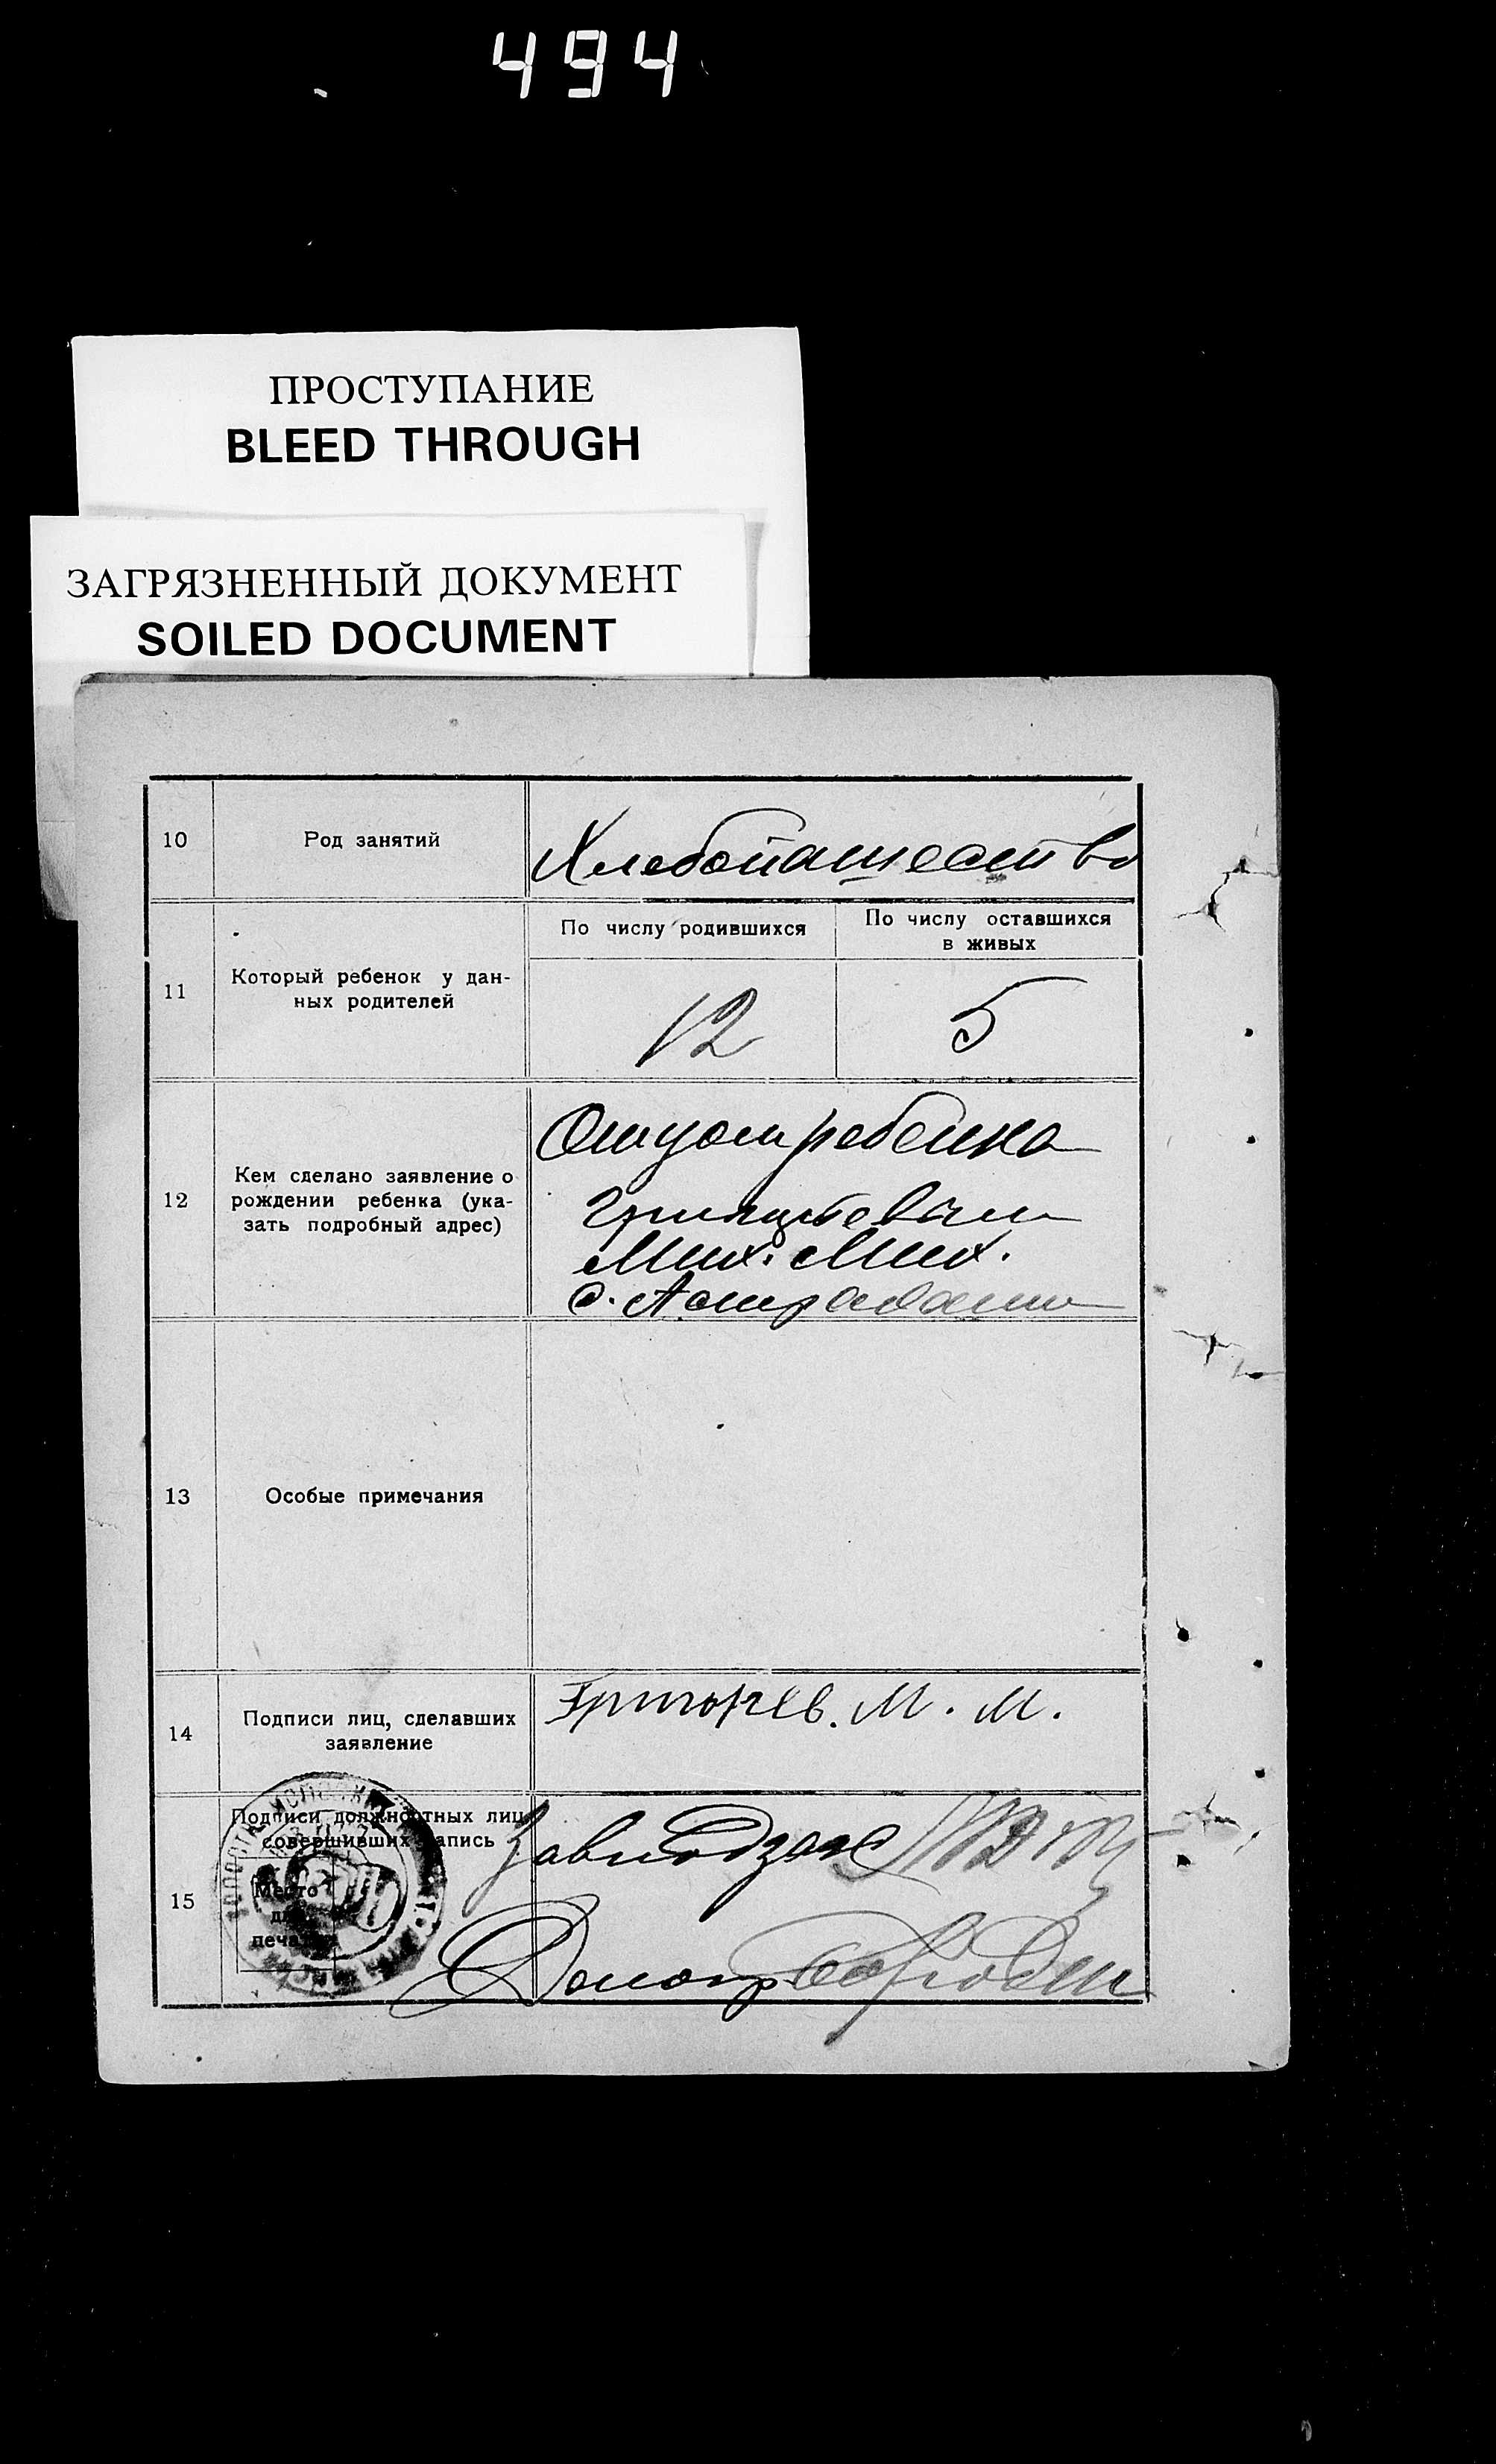 494
ПРОСТУПАНИЕ
BLEED THROUGH
ЗАГРЯЗНЕННЫЙ ДОКУМЕНТ
SOILED DOCUMENT
10
Род занятий
Хлебопашество
11
Который ребенок у дан-
ных родителей
По числу родившихся
По числу оставшихся
в живых
12
5
12
Кем сделано заявление о
рождении ребенка (ука-
зать подробный адрес)
Отцом ребенка
Мих. Мих.
с.
13
Особые примечания
14
Подписи лиц, сделавших
заявление
М. М.
15
Подписи должностных лиц,
совершивших запись
Место
для
печати
Завподзагс
Делопр